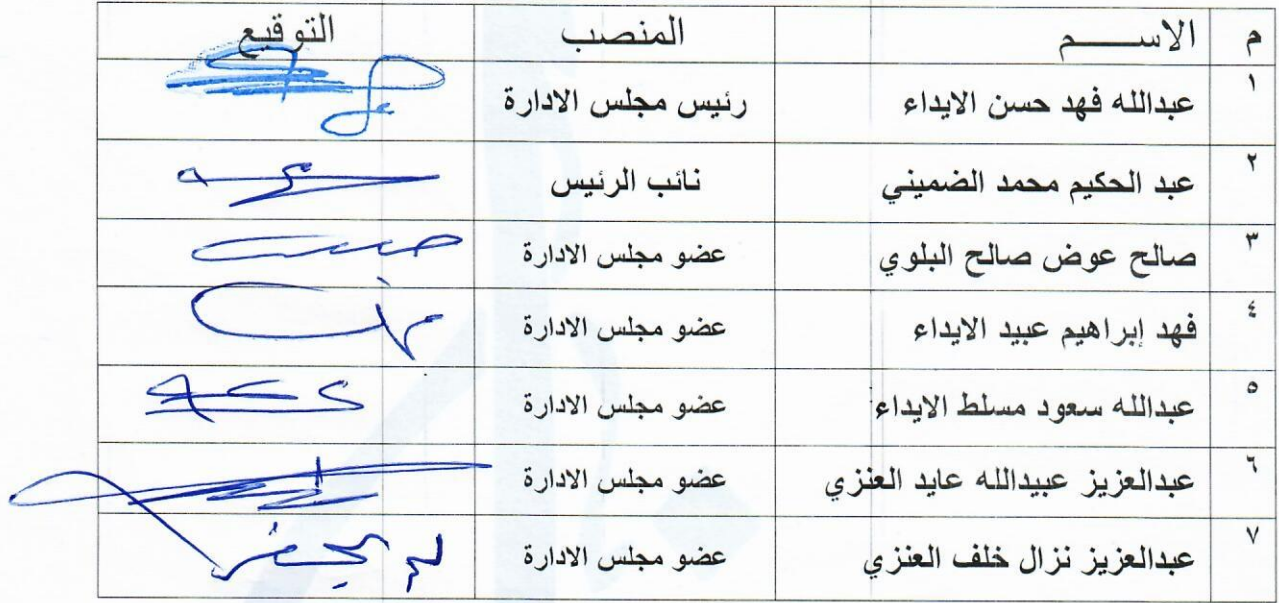 م الاســـــم المنصب التوقيع
١ عبدالله فهد حسن الايداء رئيس مجلس الادارة
٢ عبد الحكيم محمد الضميني نائب الرئيس
٣ صالح عوض صالح البلوي عضو مجلس الادارة
٤ فهد إبراهيم عبيد الايداء عضو مجلس الادارة
٥ عبدالله سعود مسلط الايداء عضو مجلس الادارة
٦ عبدالعزيز عبيدالله عايد العنزي عضو مجلس الادارة
٧ عبدالعزيز نزال خلف العنزي عضو مجلس الادارة